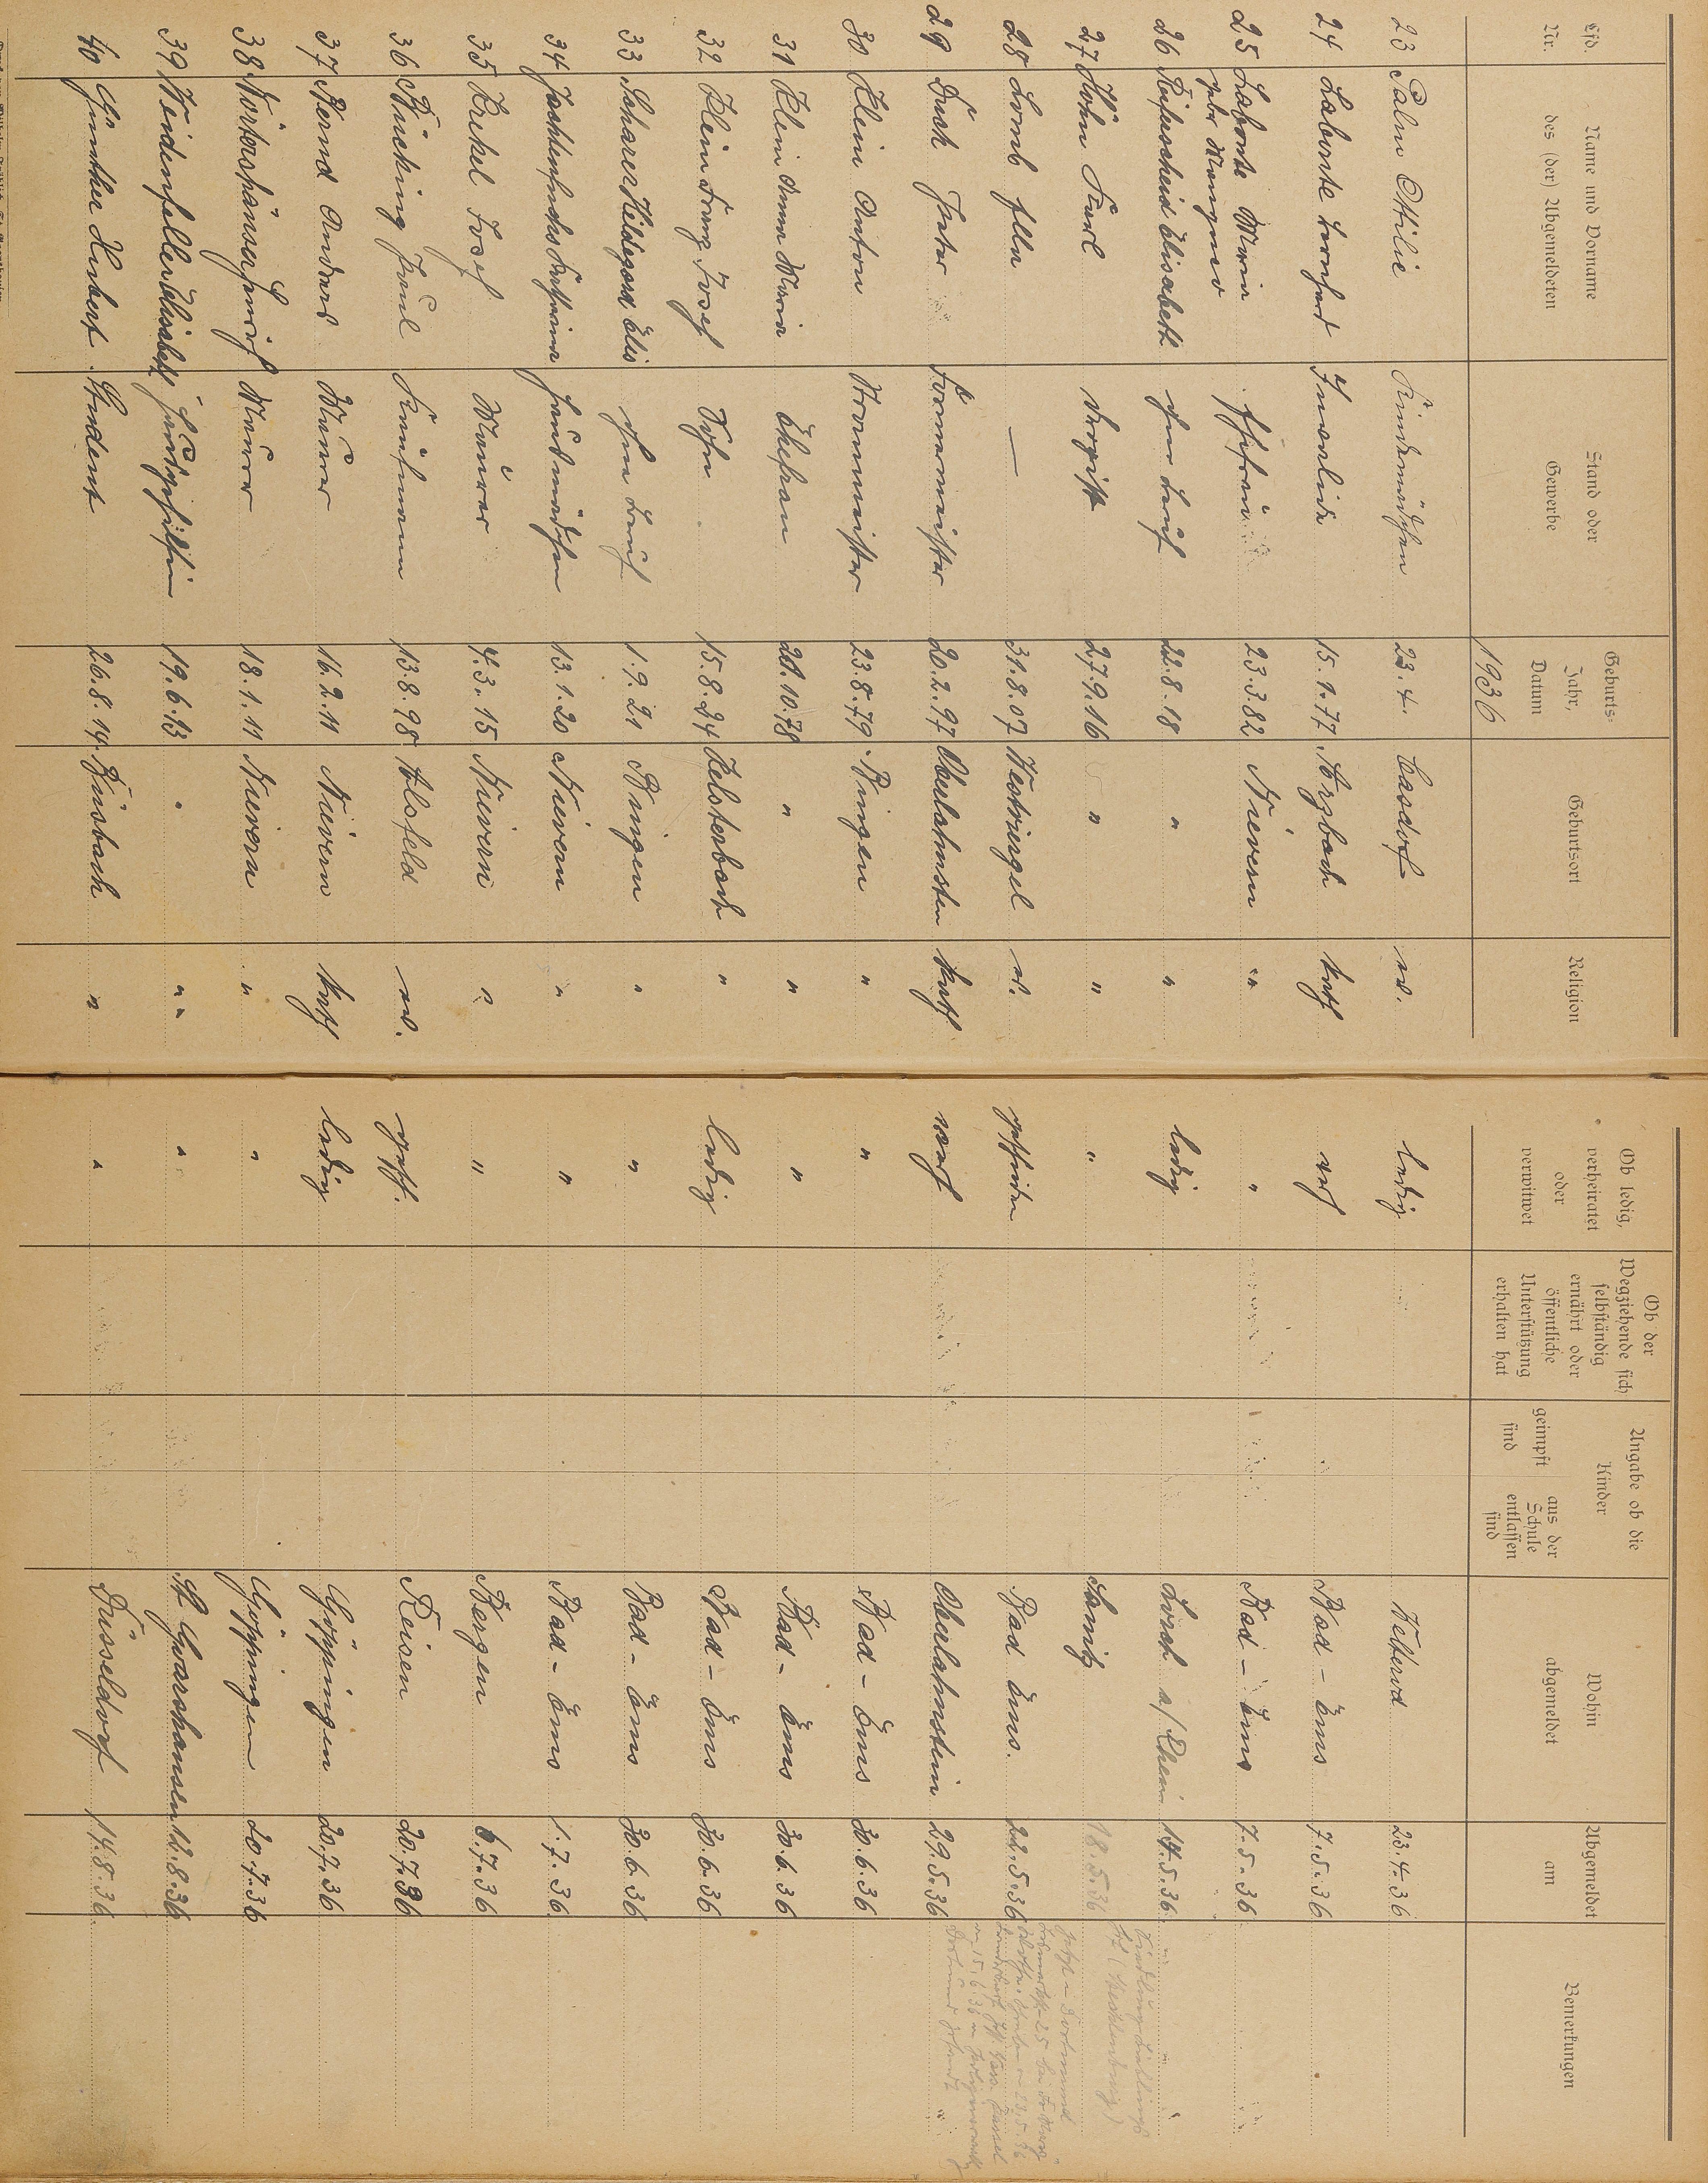 Lfd. Nr. Name und Vorname des (der) Abgemeldeten Stand oder Gewerbe Geburts= Jahr, Datum Geburtsort Religion Ob ledig, verheiratet oder verwitwet Ob der Wegziehende sich selbständig ernährt oder öffentliche Unterstützung erhalten hat Angabe ob die Kinder geimpft sind aus der Schule entlassen sind Wohin abgemeldet Abgemeldet am Bemerkungen
1936
23 Palm Ottilie Kindermädchen 23.4. Casdorf ev. ledig Kelterod 23.4.36
24 Labonte Leonhard Invalide 15.1.77. Arzbach kath verh Bad-Ems 7.5.36
25 Labonte Maria Ehefrau 23.3.82 Nievern " " Bad-Ems 7.5.36
geb.
26 Reifenscheid Elisabeth ohne Beruf 22.8.18 " " ledig Lorch a/Rhein 14.5.36
27 Höhn Karl Drogist 27.9.16 " " " 18.5.36
28 Lomb Ella — 31.8.07 ev. geschieden Bad Ems. 22.5.36
29 Peter Formermeister 20.2.97 Oberlahnstein kath verh Oberlahnstein 29.5.36
30 Klein Anton Strommeister 23.8.79 Bingen " " Bad-Ems 30.6.36
31 Klein Anna Maria Ehefrau 21.10.78 " " " Bad-Ems 30.6.36
32 Klein Franz Josef Sohn 15.8.24 Kelsterbach " ledig Bad-Ems 30.6.36
33 Scharer Hildegard Elis ohne Beruf 1.9.21 Bingen " " Bad-Ems 30.6.36
34 Katharina Hausmädchen 13.1.20 Nievern " " Bad-Ems 1.7.36
35 Krekel Josef Maurer 4.3.15 Nievern " " Bergen 6.7.36
36 Bücking Paul Kaufmann 13.8.98 Alsfeld ev. gesch. Reisen 20.7.36
37 Bernd Andreas Maurer 16.2.11 Nievern kath ledig Göppingen 20.7.36
38 Maurer 18.1.11 Nievern " " Göppingen 20.7.36
39 Weidenfeller Elisabeth Hausgehilfin 19.6.13 " " " St Goarshausen 12.8.36
40 Günther Hubert Student 26.8.14. " " Düsseldorf 14.8.36